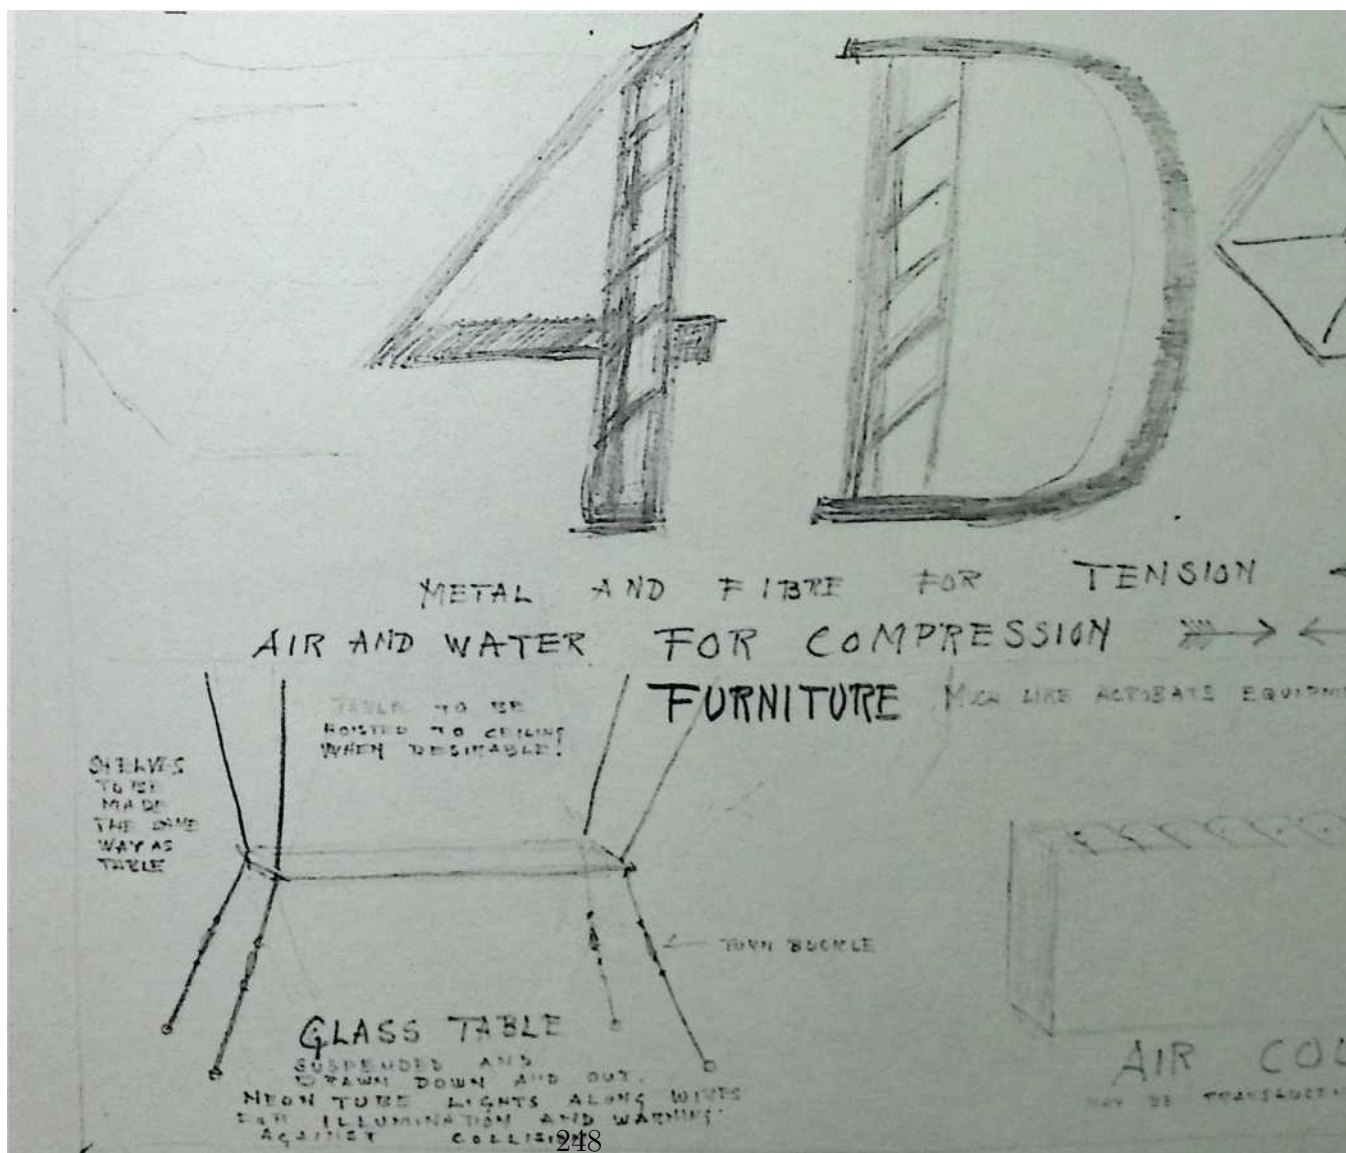 4D
METAL AND FIBRE FOR TENSION
AIR AND WATER FOR COMPRESSION
FURNITURE MUCH LIKE ACROBATS
TABLE TO BE
HOISTED TO CEILING
WHEN DESIRABLE!
SHELVES
TO BE
MADE
THE SAME
WAY AS
TABLE
TURN BUCKLE
GLASS TABLE
SUSPENDED AND
DRAWN DOWN AND OUT.
NEON TUBE LIGHTS ALONG WIRES
FOR ILLUMINATION AND WARNING
AGAINST COLLISION
AIR
MAY BE
248